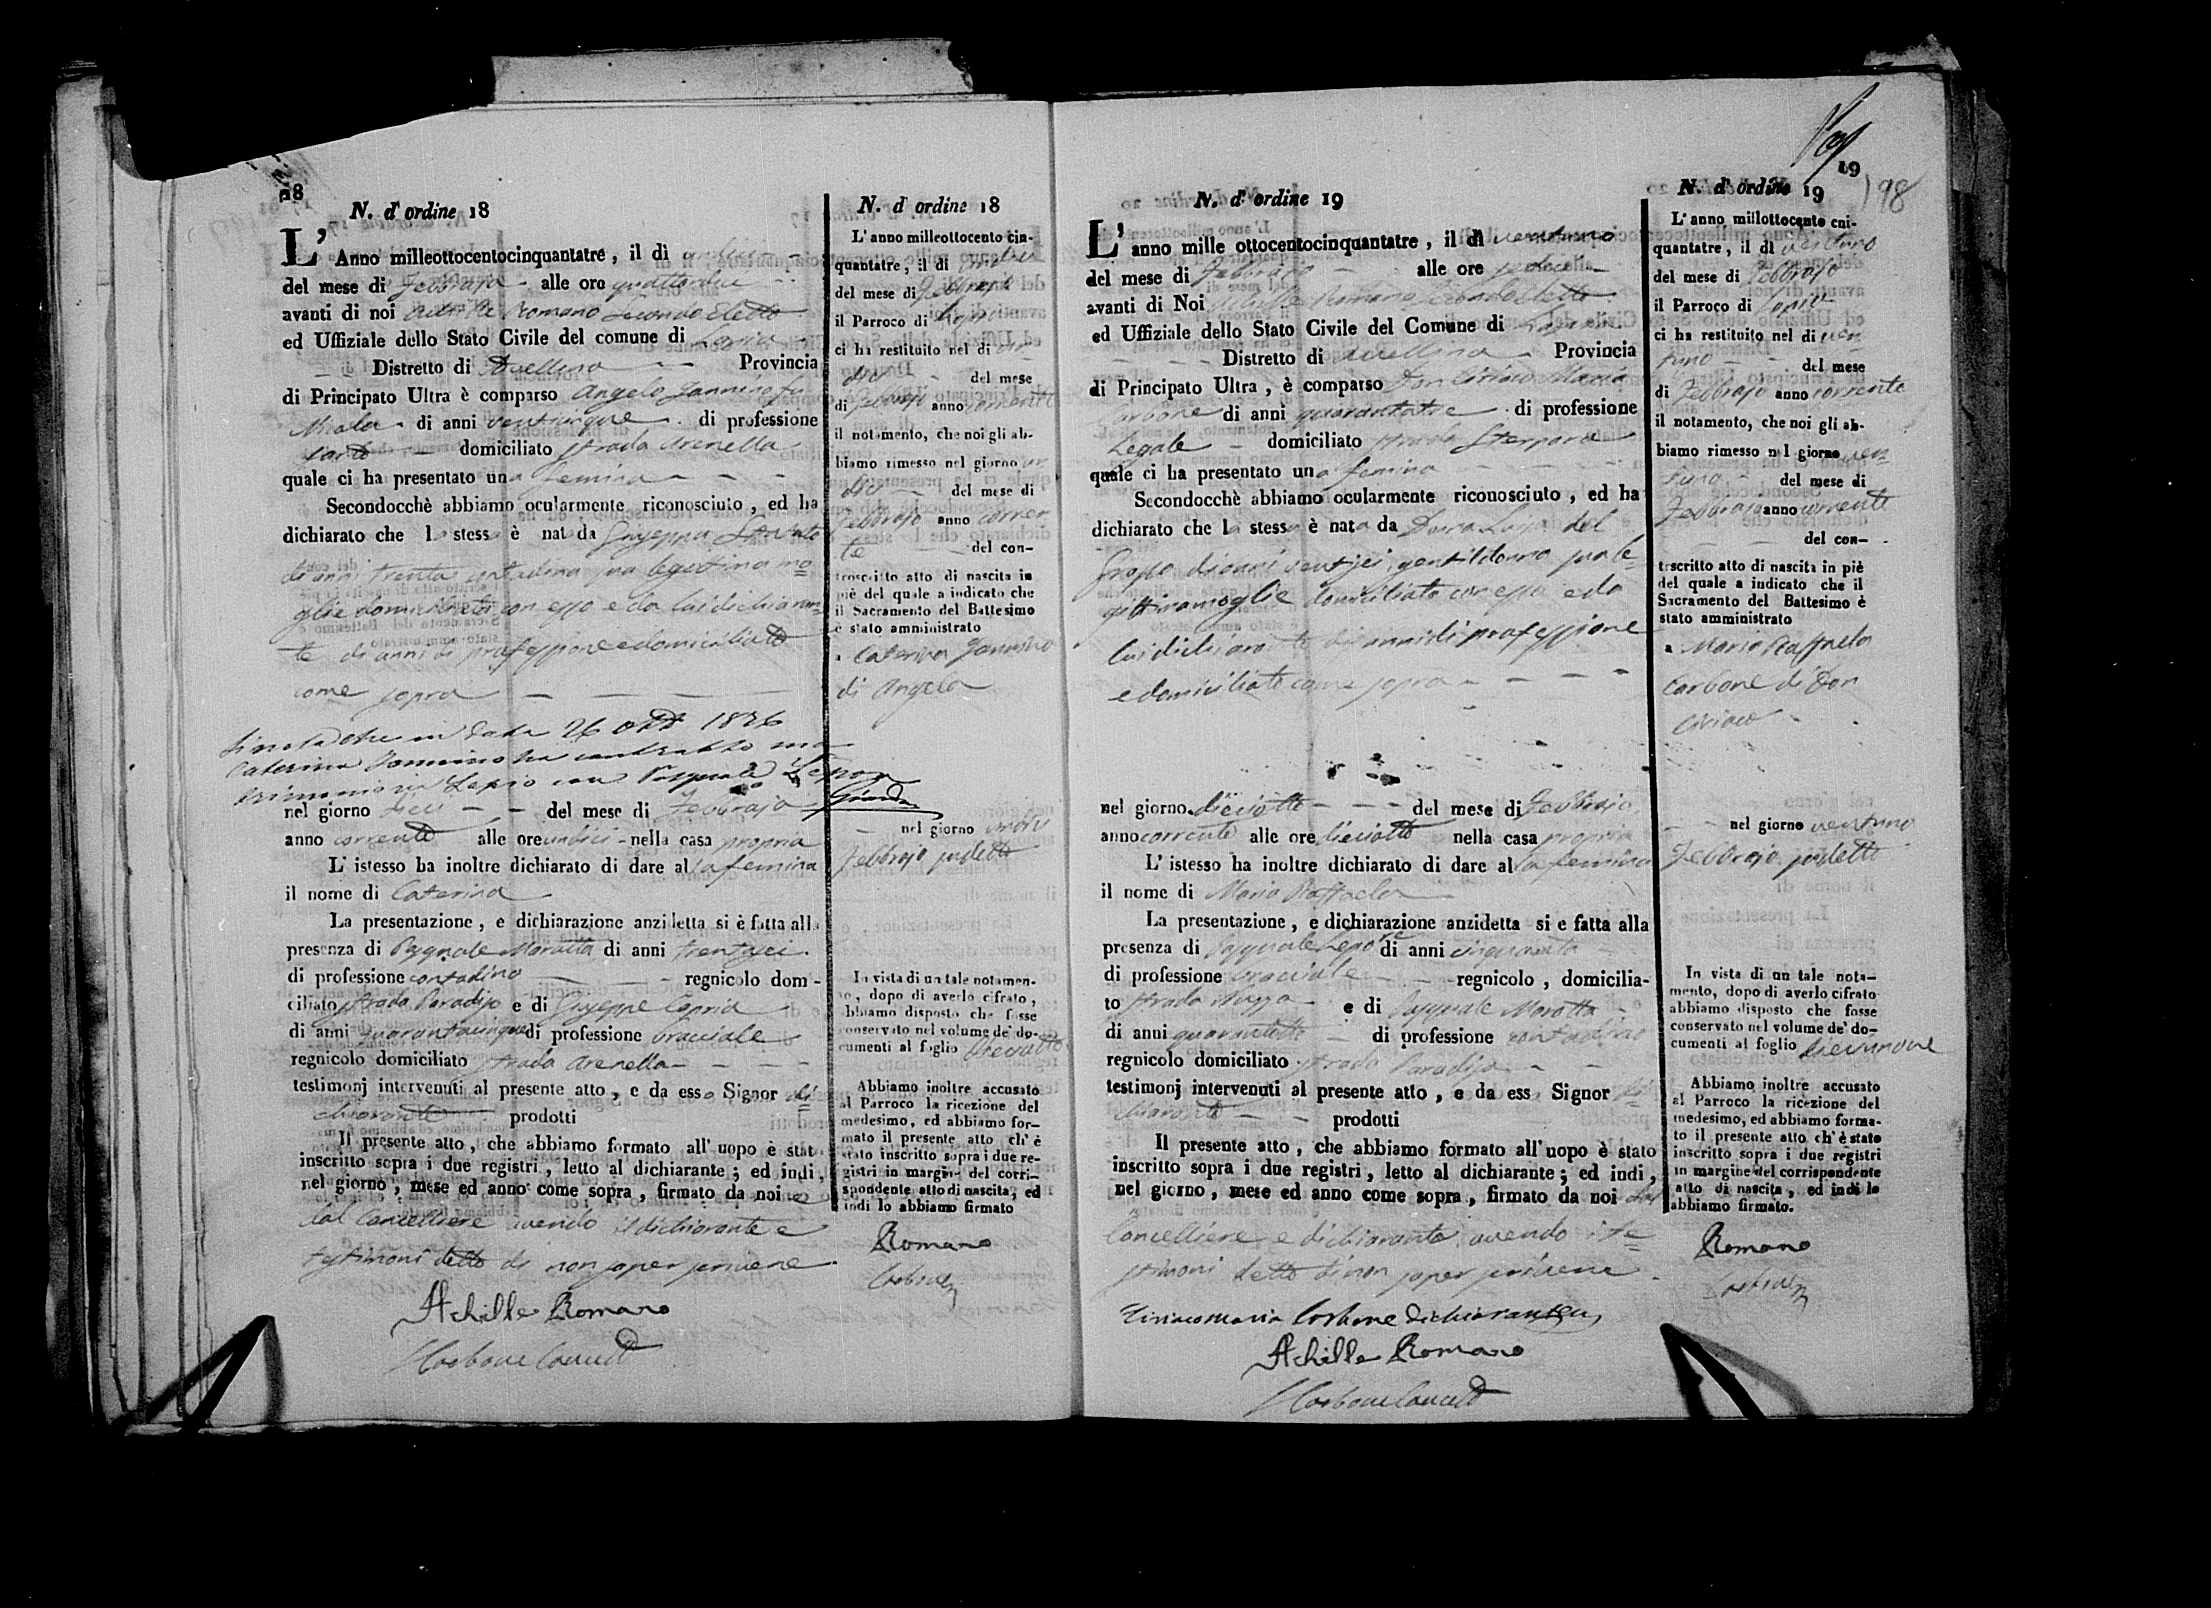 18
N. d' ordine 18
L' Anno milleottocentocinquantatre, il dì undici
del mese di Febbrajo alle ore quattordici
avanti di noi Achille Romano Secondo Eletto
ed Uffiziale dello Stato Civile del comune di Lapio
Distretto di Avellino Provincia
di Principato Ultra è comparso Angelo Jannino fu
di anni venticinque di professione
domiciliato strada Arenella
quale ci ha presentato una femina
Secondocchè abbiamo ocularmente riconosciuto, ed ha
dichiarato che la stessa è nata da Giuseppa
di anni trenta contadina sua legittima mo=
glie domiciliata con esso e da lui dichiaran=
te di anni di professione e domiciliato
come sopra
Si nota che in data 26 ott
Caterina Jannino ha contratto ma
trimonio in Lapio con Pasquale Lepore
nel giorno dieci del mese di Febbrajo
anno corrente alle ore undici nella casa propria
L' istesso ha inoltre dichiarato di dare alla femina
il nome di Caterina
La presentazione, e dichiarazione anzidetta si è fatta alla
presenza di Pasquale Marotta di anni trentasei
di professione contadino regnicolo dom-
ciliato strada Paradiso e di Giuseppe Caprio
di anni quarantacinque di professione bracciale
regnicolo domiciliato strada Arenella
testimonj intervenuti al presente atto, e da esso Signor di=
chiarante prodotti
Il presente atto, che abbiamo formato all' uopo è stato
inscritto sopra i due registri, letto al dichiarante; ed indi,
nel giorno, mese ed anno come sopra, firmato da noi e
dal Cancelliere avendo il dichiarante e
testimoni detto di non saper scrivere
Achille Romano
Carbone Cancell
N. d' ordine 18
L' anno milleottocento cin-
quantatre, il dì undici
del mese di Febbrajo
il Parroco di Lapio
ci ha restituito nel dì un
dici del mese
di Febbrajo anno corrente
il notamento, che noi gli ab-
biamo rimesso nel giorno un
dici del mese di
Febbrajo anno corren
te del con-
troscritto atto di nascita in
piè del quale a indicato che
il Sacramento del Battesimo
è stato amministrato
a Caterina Jannino
di Angelo
nel giorno undici
Febbrajo sudetto
In vista di un tale notamen-
to, dopo di averlo cifrato,
abbiamo disposto che fosse
conservato nel volume de' do-
cumenti al foglio dieciotto
Abbiamo inoltre accusato
al Parroco la ricezione del
medesimo, ed abbiamo for-
mato il presente atto ch' è
stato inscritto sopra i due re-
gistri in margine del corri-
spondente atto di nascita, ed
indi lo abbiamo firmato
Romano
Carbone
19
198
N. d' ordine 19
L' anno mille ottocentocinquantatre, il dì ventuno
del mese di Febbrajo alle ore sedici
avanti di Noi Achille Romano Secondo Eletto
ed Uffiziale dello Stato Civile del Comune di Lapio
Distretto di Avellino Provincia
di Principato Ultra, è comparso Don Ciriaco Maria
Carbone di anni quarantatre di professione
Legale domiciliato strada Sterpara
quale ci ha presentato una femina
Secondocchè abbiamo ocularmente riconosciuto, ed ha
dichiarato che la stessa è nata da Donna Luisa del
Grosso di anni ventisei gentildonna sua le=
gittima moglie domiciliata con esso e da
lui dichiarante di anni di professione
e domiciliato come sopra
nel giorno dieciotto del mese di Febbrajo
anno corrente alle ore dieciotto nella casa propria
L' istesso ha inoltre dichiarato di dare alla femina
il nome di Maria Raffaela
La presentazione, e dichiarazione anzidetta si e fatta alla
presenza di Pasquale Lepore di anni cinquanta
di professione bracciale regnicolo, domicilia-
to strada e di Pasquale Marotta
di anni di professione contadino
regnicolo domiciliato strada Paradiso
testimonj intervenuti al presente atto, e da esso Signor di=
chiarante prodotti
Il presente atto, che abbiamo formato all' uopo è stato
inscritto sopra i due registri, letto al dichiarante; ed indi,
nel giorno, mese ed anno come sopra, firmato da noi dal
Cancelliere e dichiarante avendo i te=
stimoni detto di non saper scrivere
Ciriaco Maria Carbone Dichiarante
Achille Romano
Carbone Cancell
N. d' ordine 19
L' anno millottocento cni-
quantatre, il dì ventuno
del mese di Febbrajo
il Parroco di Lapio
ci ha restituito nel dì ven=
tuno del mese
di Febbrajo anno corrente
il notamento, che noi gli ab-
biamo rimesso nel giorno ven=
tuno del mese di
Febbrajo anno corrente
del con-
trscritto atto di nascita in piè
del quale a indicato che il
Sacramento del Battesimo è
stato amministrato
a Maria Raffaela
Carbone di Don
Ciriaco
nel giorno ventuno
Febbrajo sudetto
In vista di un tale nota-
mento, dopo di averlo cifrato
abbiamo disposto che fosse
conservato nel volume de' do-
cumenti al foglio diecinnove
Abbiamo inoltre accusato
al Parroco la ricezione del
medesimo, ed abbiamo forma-
to il presente atto ch' è stato
inscritto sopra i due registri
in margine del corrispondente
atto di nascita, ed indi lo
abbiamo firmato.
Romano
Carbone